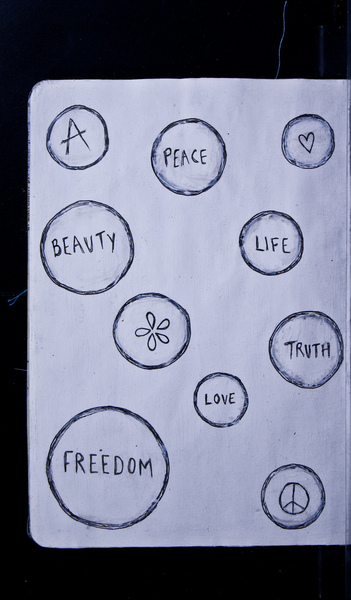 A
PEACE
BEAUTY
LIFE
TRUTH
LOVE
FREEDOM